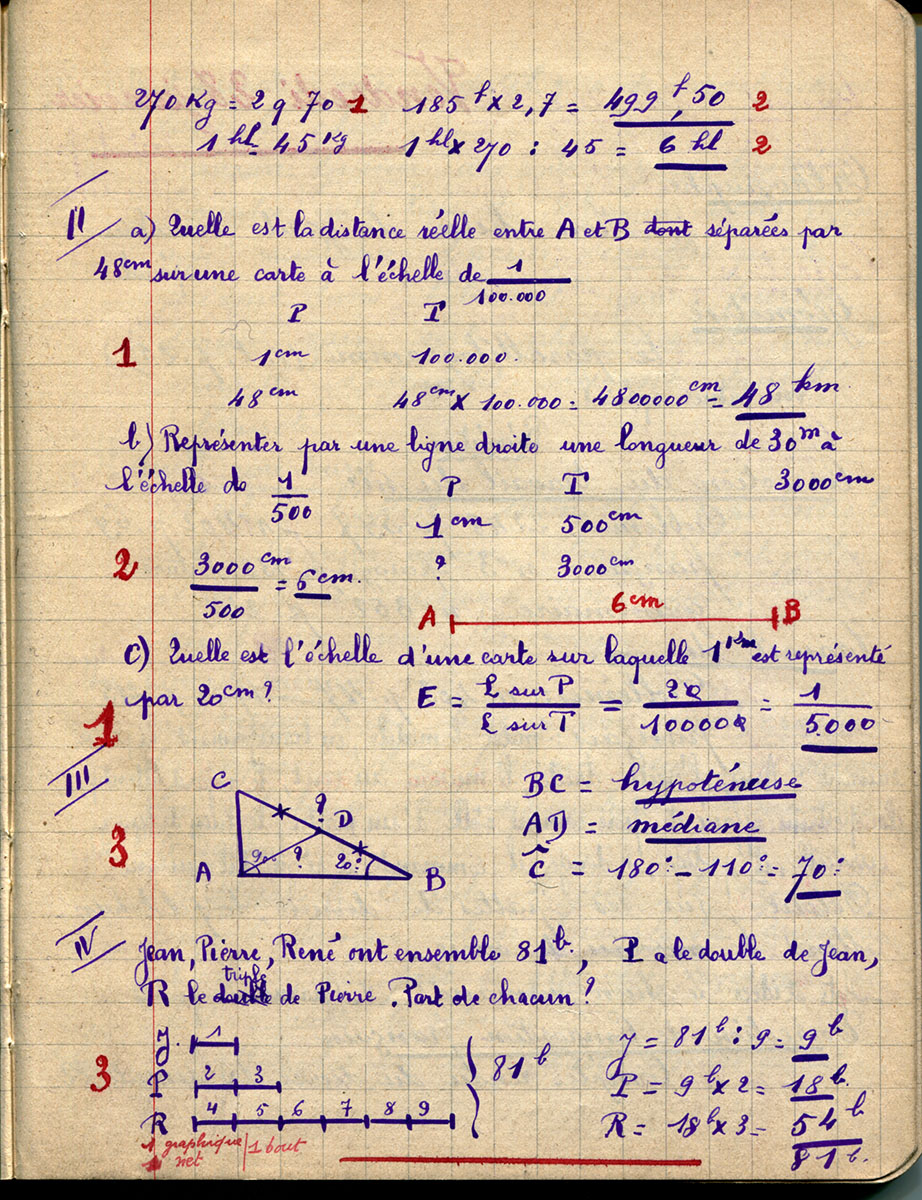 270 Kg = 2 q 70 1 185 f x 2,7 = 499 f,50 2
1 hl = 45 Kg 1 hl x 270 : 45 = 6 hl 2
II a) Quelle est la distance réelle entre A et B dont séparées par
48 cm sur une carte à l'échelle de 1/100.000
P T
1 1 cm 100.000.
48 cm 48 cm x 100.000 = 4800000 cm = 48 km
b) Représenter par une ligne droite une longueur de 30 m à
l'échelle de 1/500 P T 3000 cm
1 cm 500 cm
2 3000 cm/500 = 6 cm. ? 3000 cm
A 6 cm B
c) Quelle est l'échelle d'une carte sur laquelle 1 Km est représenté
par 20 cm? E = L sur P/L sur T = 20/100000 = 1/5.000
1
III C ? D BC = hypoténuse
AD = médiane
3 A 90° ? 20° B Ĉ = 180° - 110° = 70°
IV Jean, Pierre, René ont ensemble 81 b, P a le double de Jean,
triple
R le double de Pierre. Part de chacun?
J 1 J = 81 b : 9 = 9 b
3 P 2 3 81 b P = 9 b x 2 = 18 b.
R 4 5 6 7 8 9 R = 18 b x 3 = 54 b
1 graphique 1 bout 81 b.
net